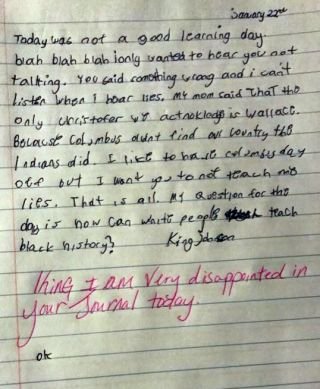 January 22nd
Today was not a good learning day.
blah blah blah i only wanted to hear you not
talking. You said something wrong and i can't
listen when I hear lies. My mom said that the
only Christofer we acknoklage is wallace.
Because Columbus didnt find our country the
Indians did. I like to have columbus day
off but I want you to not teach me
lies. That is all. My question for the
day is how can white people teach
black history?
King Johnson
King I am very disappointed in
your Journal today.
ok